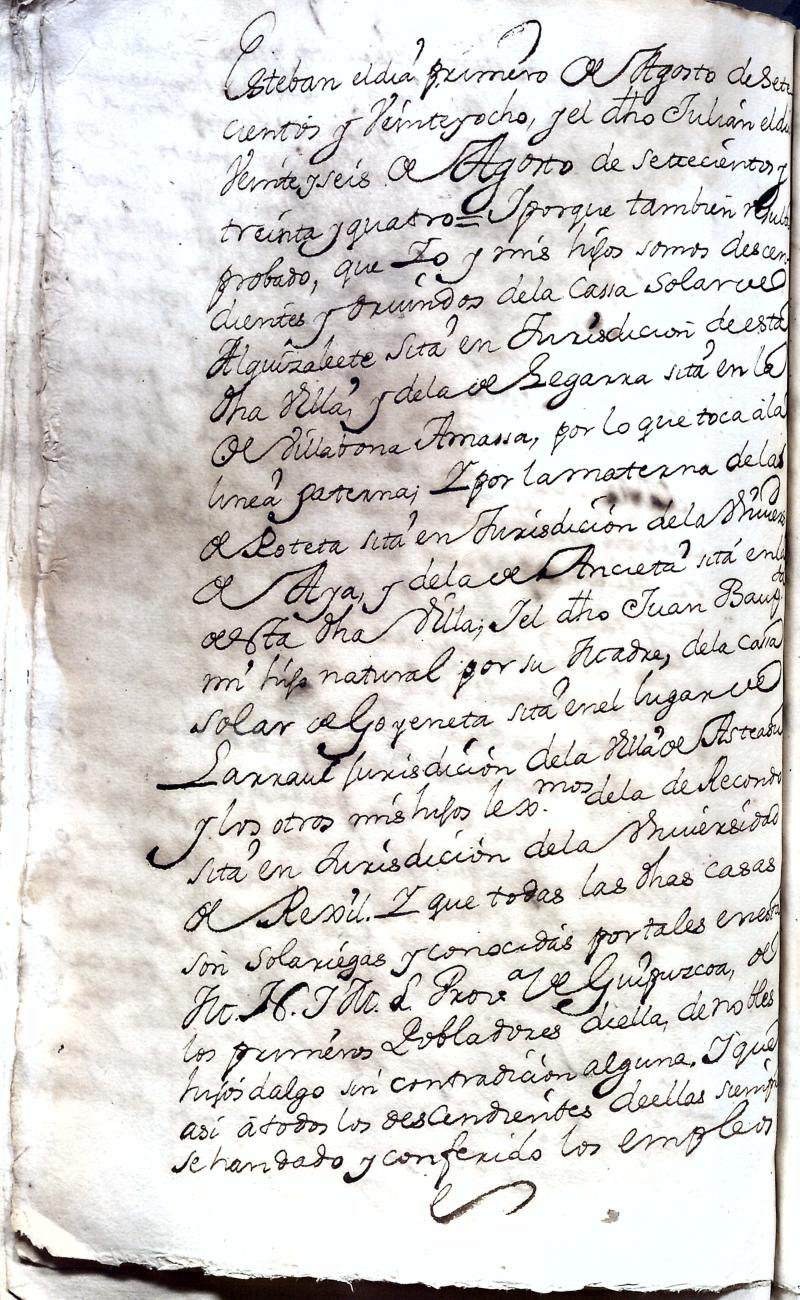 Esteban el dia primero de Agosto de Sete
cientos y Veinteyocho, y el dho Julián el dia
Veinteyseis de Agosto de settecientos y
treinta y quatro = I porque tambien resulta
probado, que Yo y mis hijos somos descen-
dientes y oriundos dela Cassa Solar de
Alquizalete sita en Jurisdicion de esta
dha Villa, y dela de Legarra sita en la
de Villabona Amassa, por lo que toca a la
linea paterna; Y por la materna de las
de Roteta sita en Jurisdición dela Univers.d
de Aya, y dela de Ancieta sita en la
de esta dha Villa; I el dho Juan Baup.ta
mi hijo natural por su Madre, dela casa
solar de Goyeneta sita en el lugar de
Larraul Jurisdición dela Villa de Asteasu
y los otros mis hijos lex.mos dela de Recondo
sita en Jurisdición dela Universidad
de Rexil. Y que todas las dhas casas
son solariegas y conocidas por tales en esta
M. N. I M. L. Prov.a de Guipuzcoa, de
los primeros Pobladores d'ella, de nobles
hijos dalgo sin contradición alguna. I que
asi á todos los descendientes de ellas siemp.
se han dado y conferido los empleos